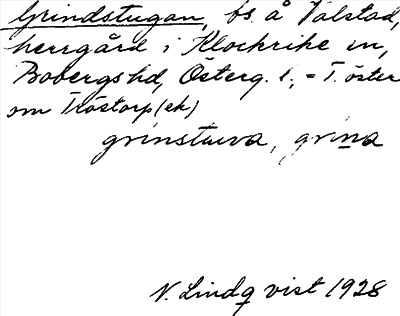 Grindstugan, bs. å Valstad,
herrgård i Klockrike sn,
Bobergs hd, Österg. l., = T. öster
om Tröstorp (ek)
grinstuva, grina
N. Lindqvist 1928